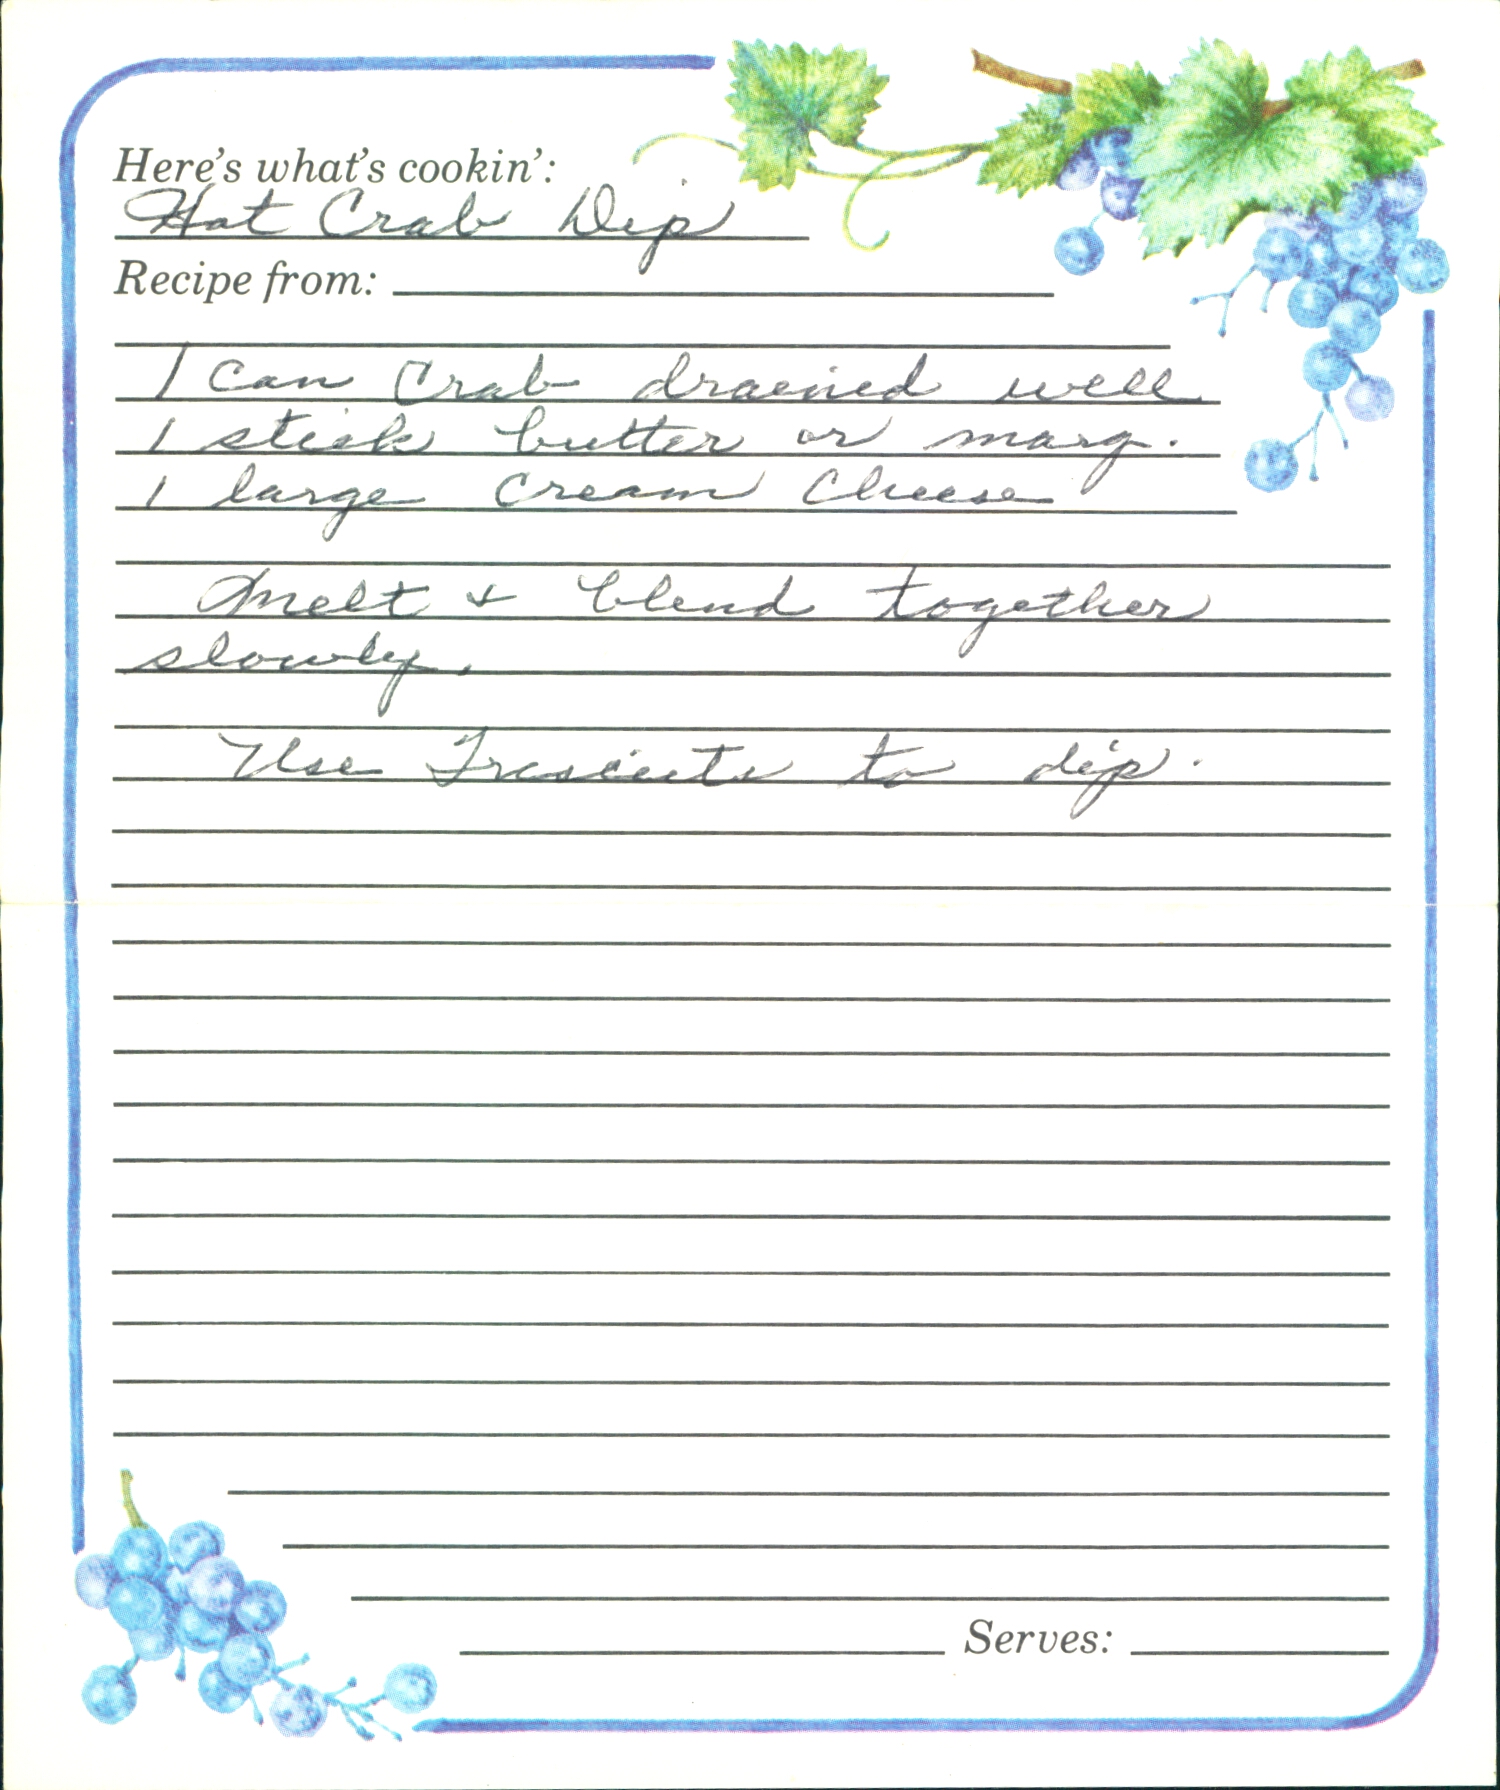 Here's what's cookin':
Hot Crab Dip
Recipe from:
1 can Crab drained well
1 stick butter or marg.
1 large Cream Cheese
Melt & blend together
slowly.
Use Trescuits to dip.
Serves: